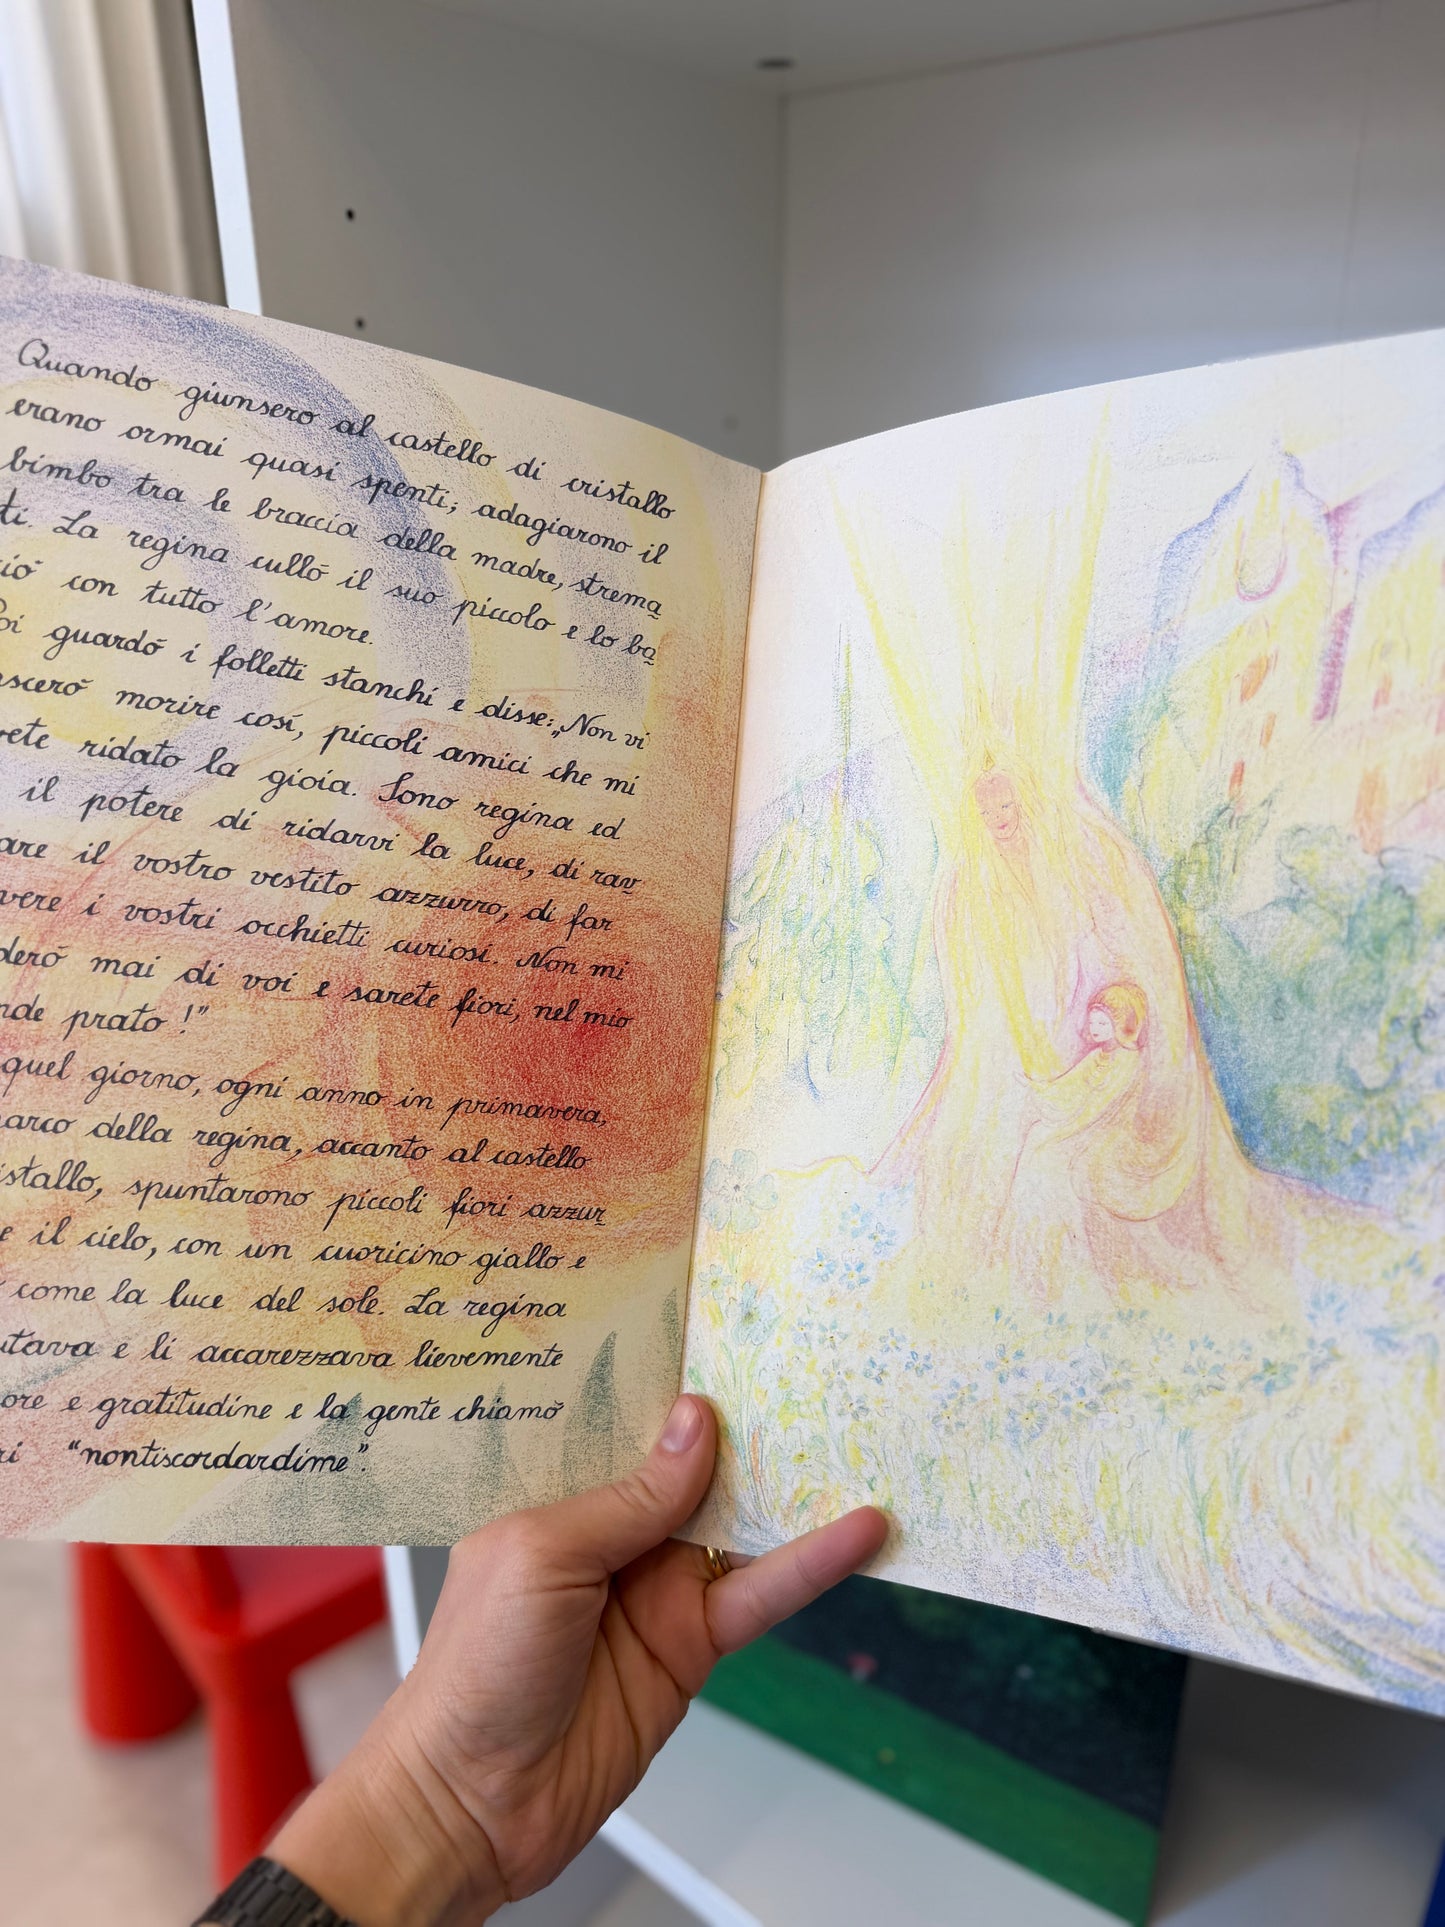 Quando giunsero al castello di cristallo
erano ormai quasi spenti; adagiarono il
bimbo tra le braccia della madre, strema
ti. La regina cullò il suo piccolo e lo ba
ciò con tutto l'amore.
Poi guardò i folletti stanchi e disse: „Non vi
scerò morire così, piccoli amici che mi
ete ridato la gioia. Sono regina ed
il potere di ridarvi la luce, di rav
are il vostro vestito azzurro, di far
vere i vostri occhietti curiosi. Non mi
derò mai di voi e sarete fiori, nel mio
nde prato!”
quel giorno, ogni anno in primavera,
arco della regina, accanto al castello
istallo, spuntarono piccoli fiori azzur
e il cielo, con un cuoricino giallo e
come la luce del sole. La regina
tava e li accarezzava lievemente
ore e gratitudine e la gente chiamò
ri “nontiscordardime”.